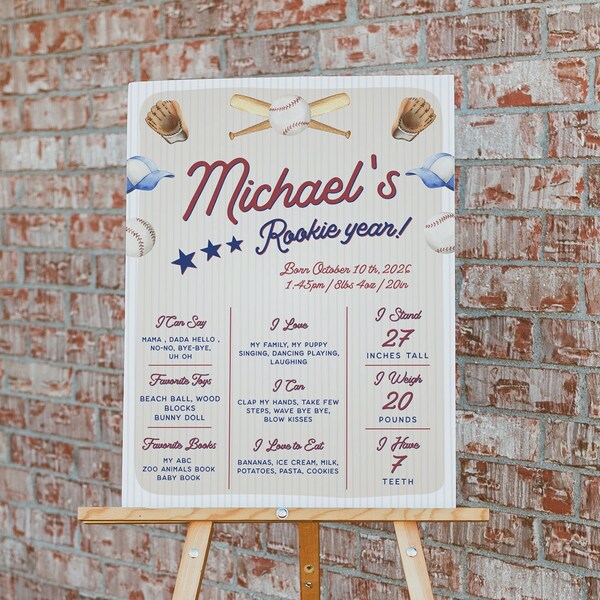 Michael's
Rookie year!
Born October 10th, 2026
1:45pm / 8lbs 4oz / 20in
I Can Say
MAMA , DADA HELLO ,
NO-NO, BYE-BYE,
UH OH
Favorite Toys
BEACH BALL, WOOD
BLOCKS
BUNNY DOLL
Favorite Books
MY ABC
ZOO ANIMALS BOOK
BABY BOOK
I Love
MY FAMILY, MY PUPPY
SINGING, DANCING PLAYING,
LAUGHING
I Can
CLAP MY HANDS, TAKE FEW
STEPS, WAVE BYE BYE,
BLOW KISSES
I Love to Eat
BANANAS, ICE CREAM, MILK,
POTATOES, PASTA, COOKIES
I Stand
27
INCHES TALL
I Weigh
20
POUNDS
I Have
7
TEETH